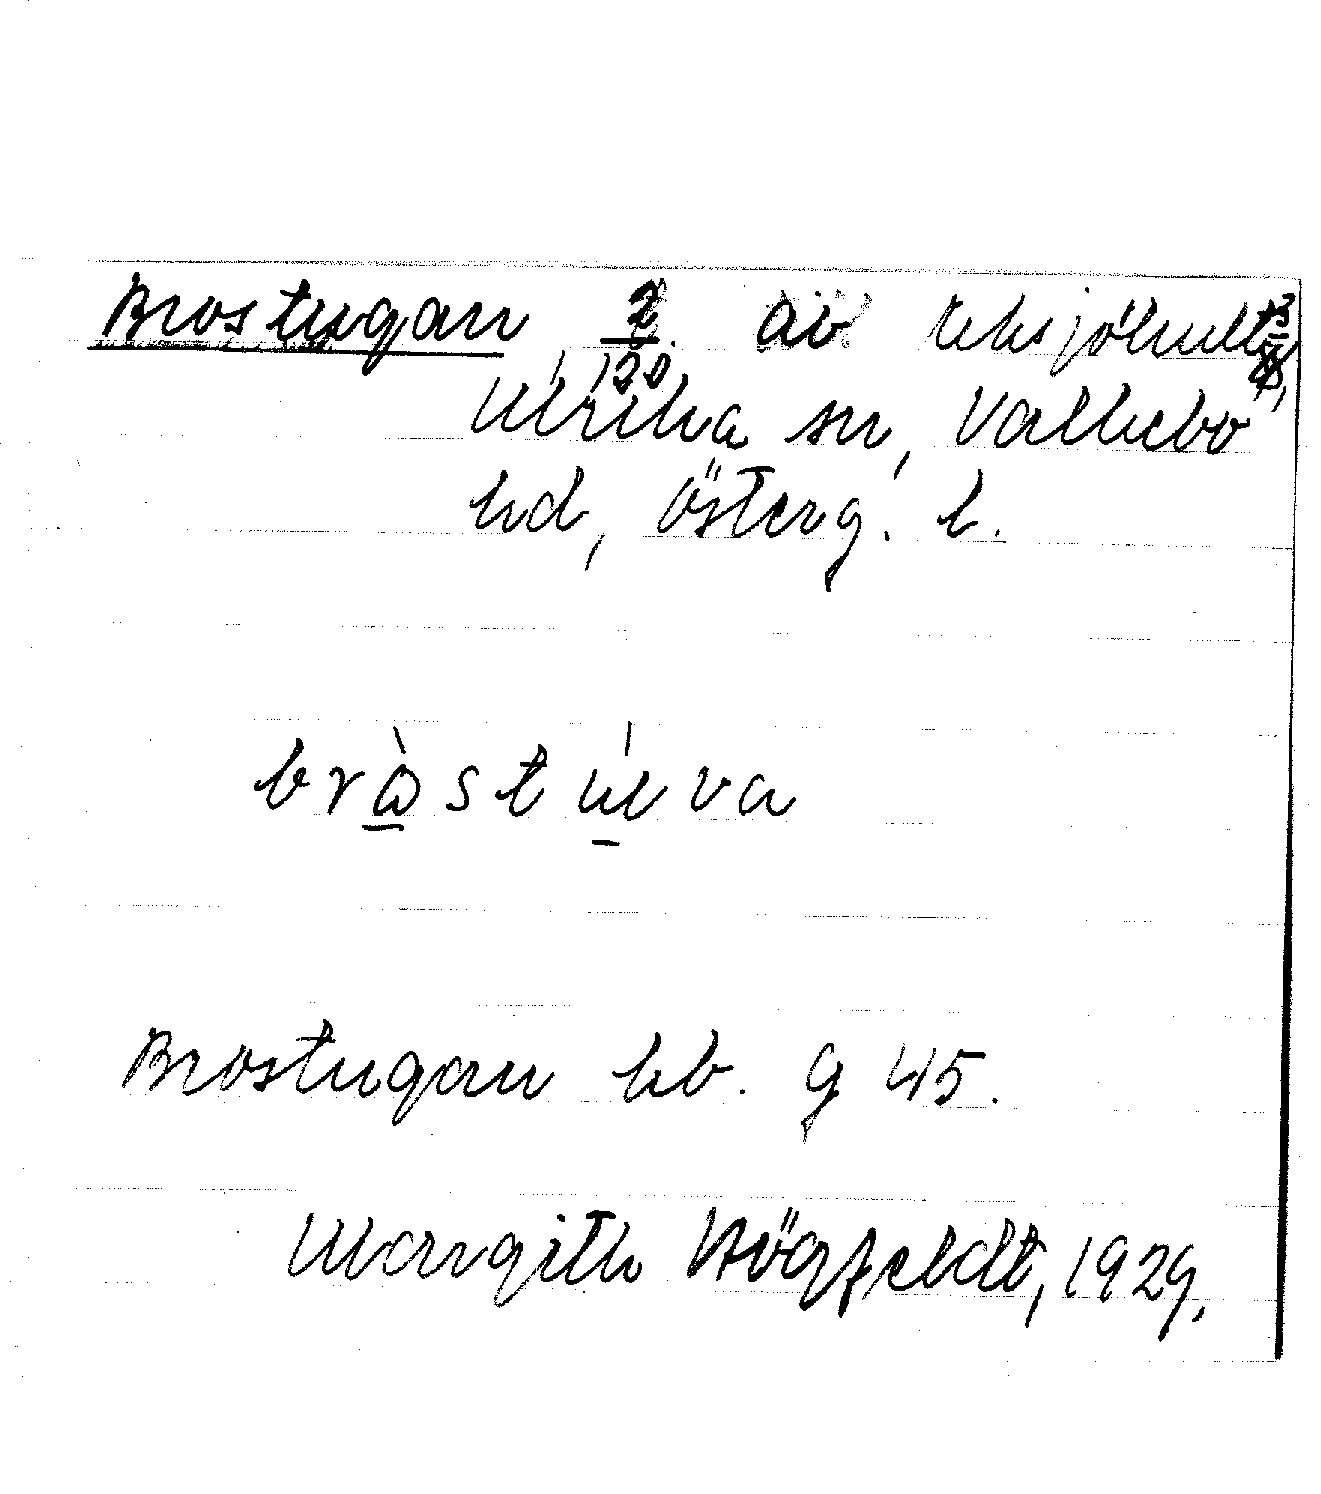 Brostugan, 2/120 av Eksjöhult
Ulrika sn, Vallebo
hd, Österg. l.
bròstúva
Brostugan hb. g 45.
Margith Högfeldt, 1929.